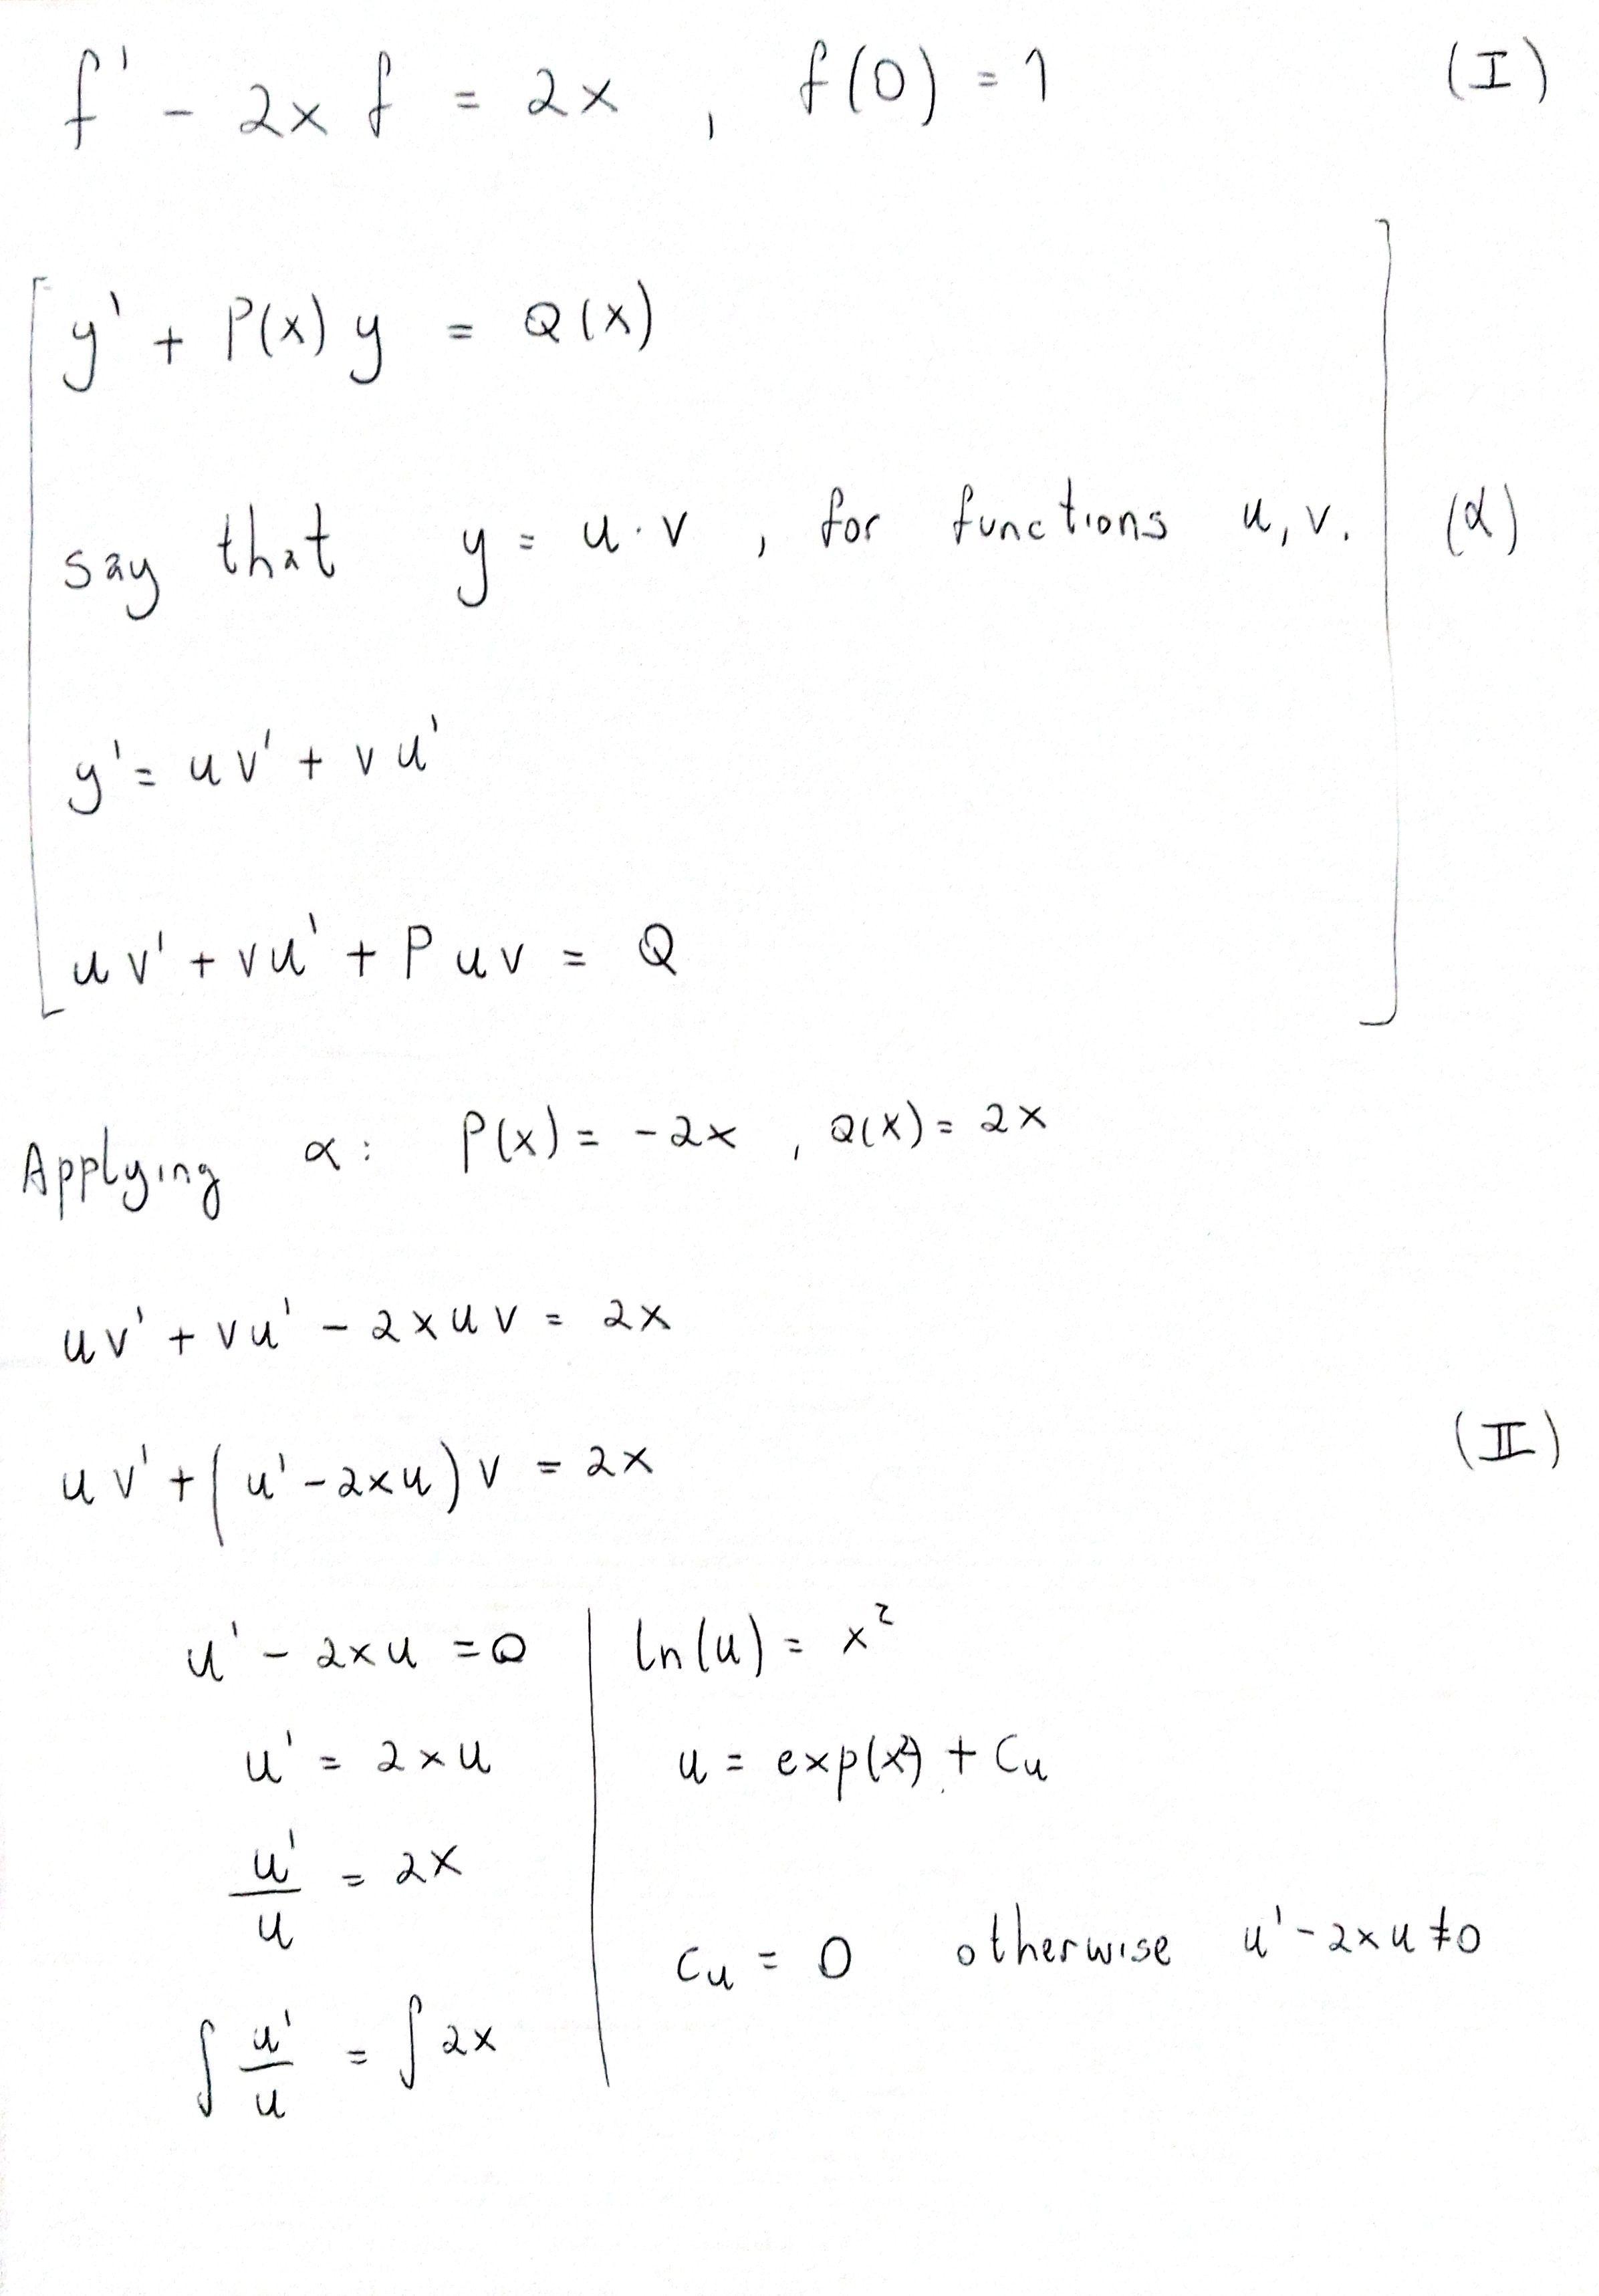 f' - 2x f = 2x , f(0) = 1 (I)
y' + P(x) y = Q(x)
say that y = u · v , for functions u, v. (α)
y' = u v' + v u'
u v' + v u' + P u v = Q
Applying α: P(x) = -2x , Q(x) = 2x
u v' + v u' - 2x u v = 2x
u v' + (u' - 2xu) v = 2x (II)
u' - 2xu = 0
u' = 2xu
u'/u = 2x
∫ u'/u = ∫ 2x
ln(u) = x²
u = exp(x²) + Cu
Cu = 0 otherwise u' - 2xu ≠ 0